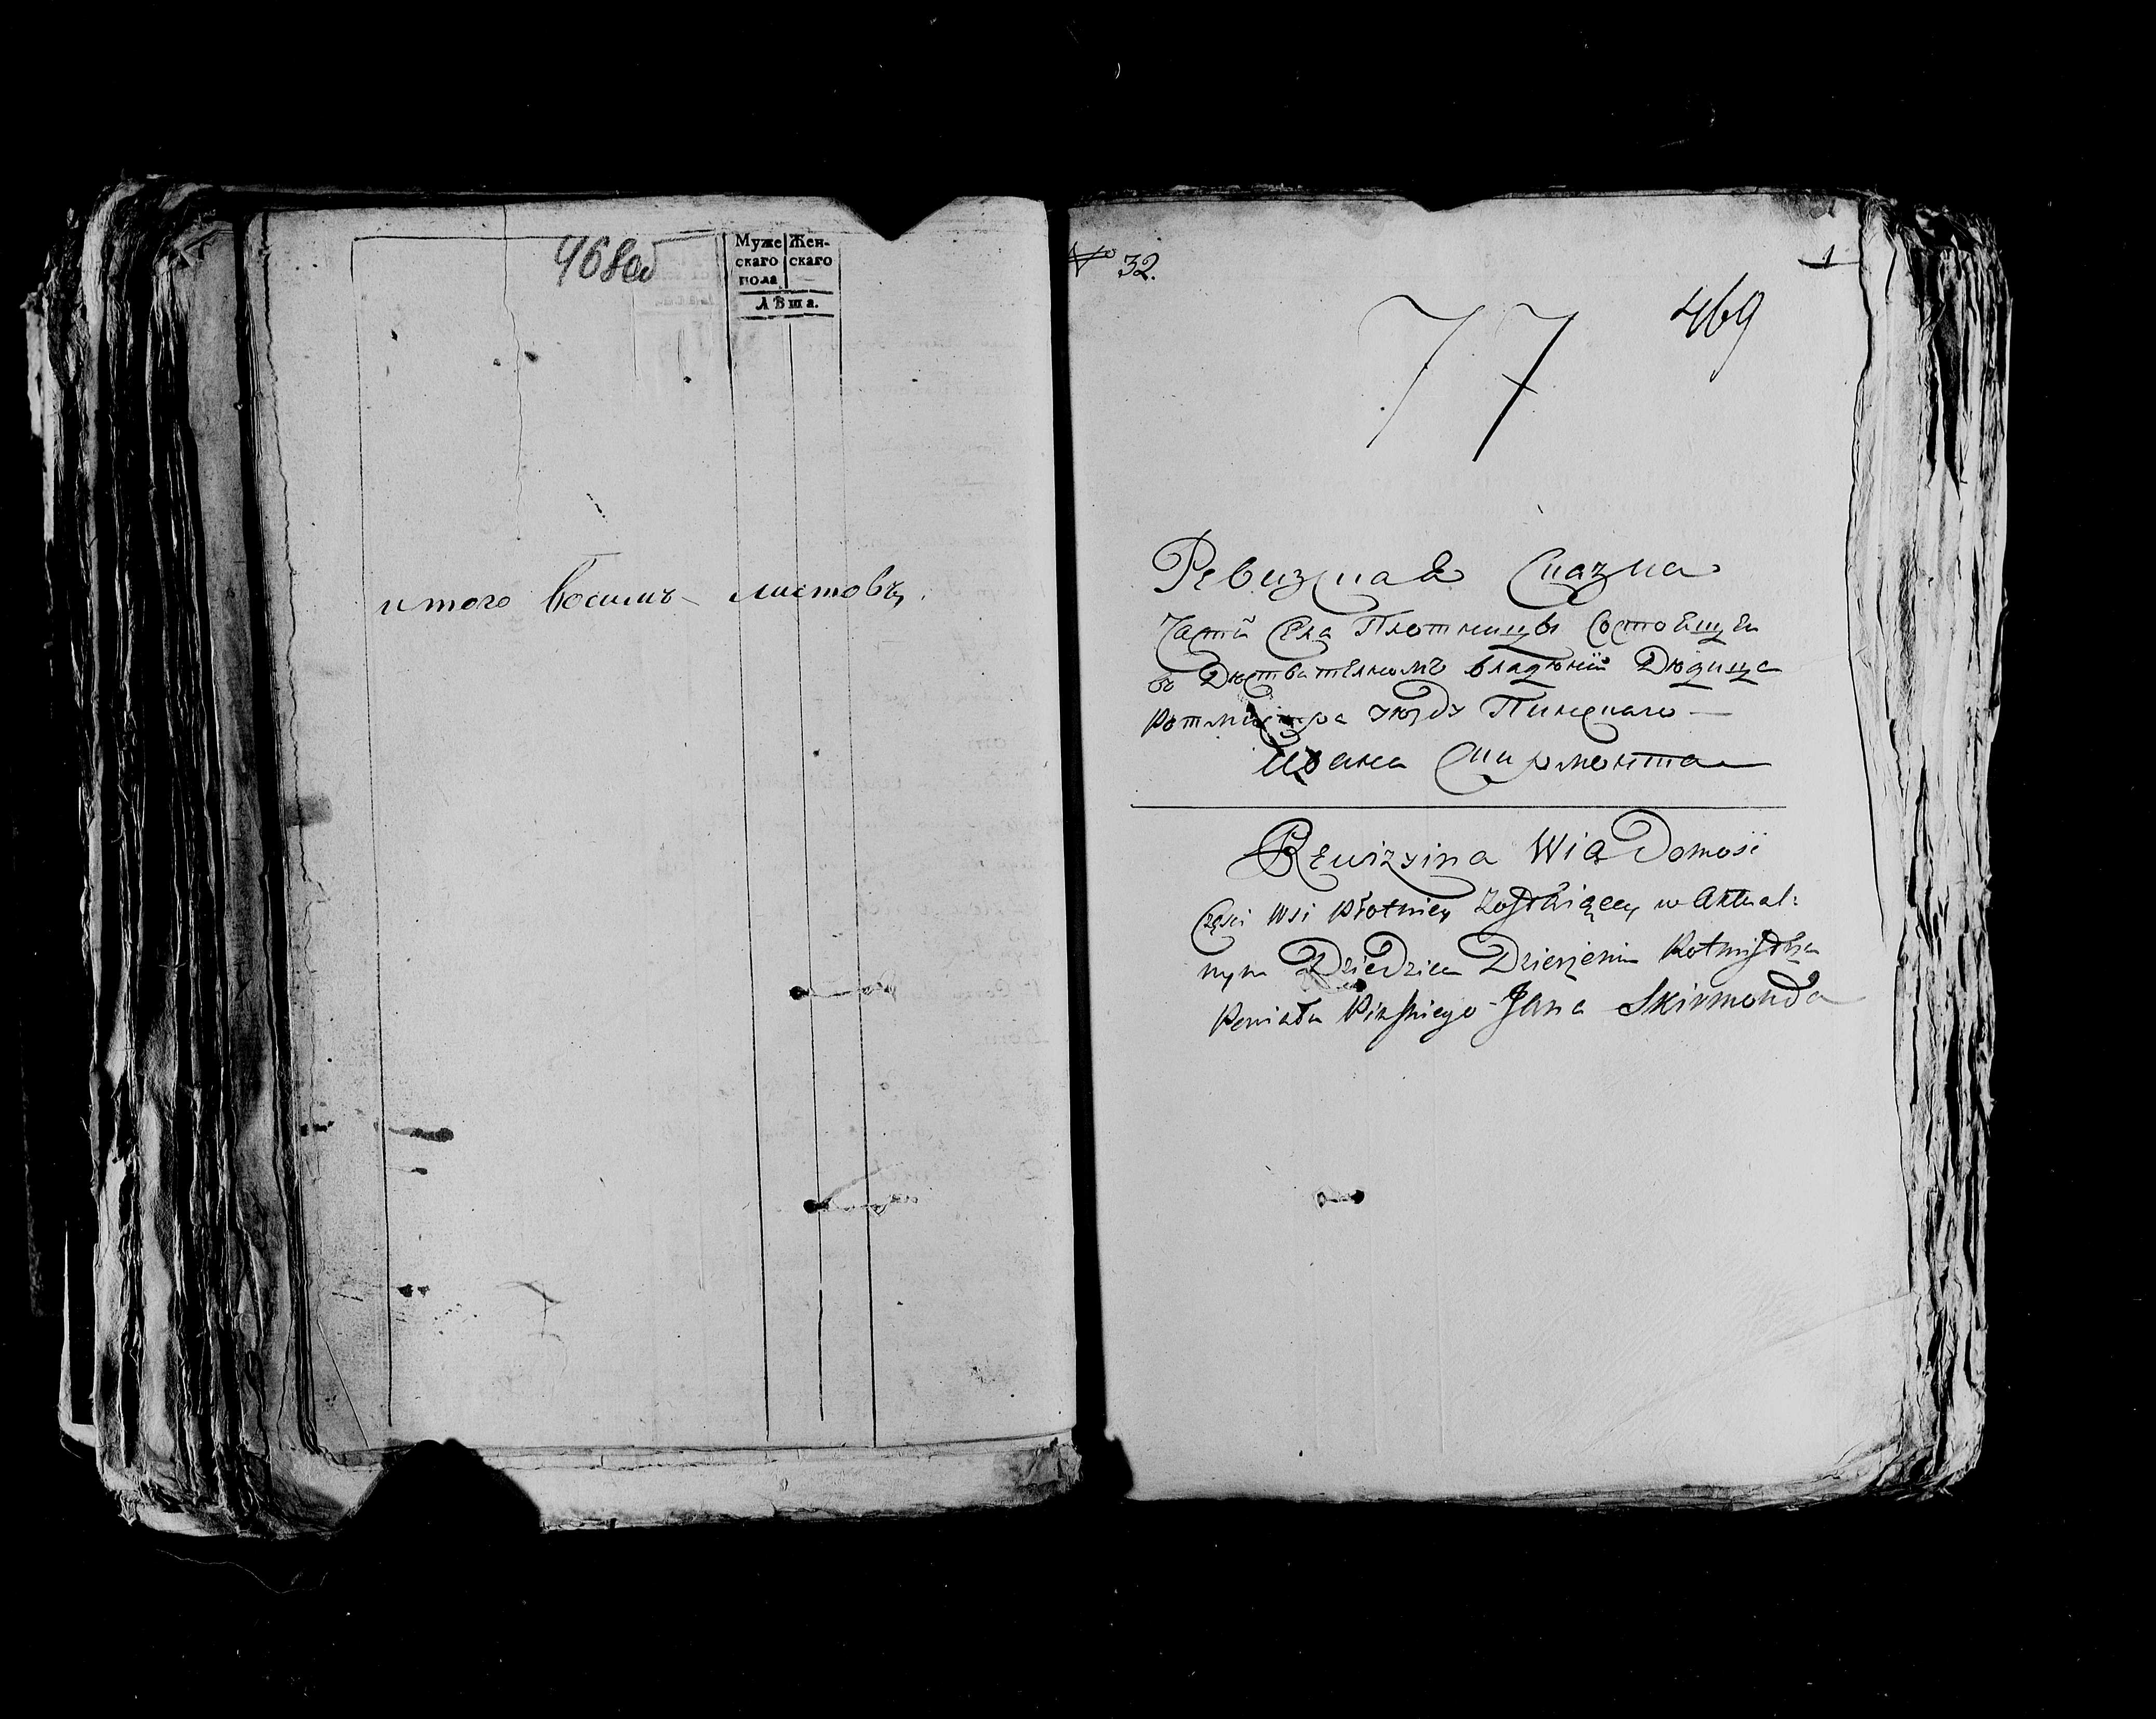 468об
Муже Жен-
скаго скаго
пола
Лѣта.
итого восимъ листовъ.
№ 32.
1
469
77
Ревизкая Сказка
Части Села Плотницы Состоящей
въ Действителномъ владении Дедица
Ротмистра уезду Пинскаго —
Ивана Скирмонта
Rewizyina Wiadomosć
Częsci Wsi Płotnicy Zostaiącey w Aktual:
nym Dziedzica Dzierżeniu Rotmistrza
Powiatu Pinskiego Jana Skirmonda